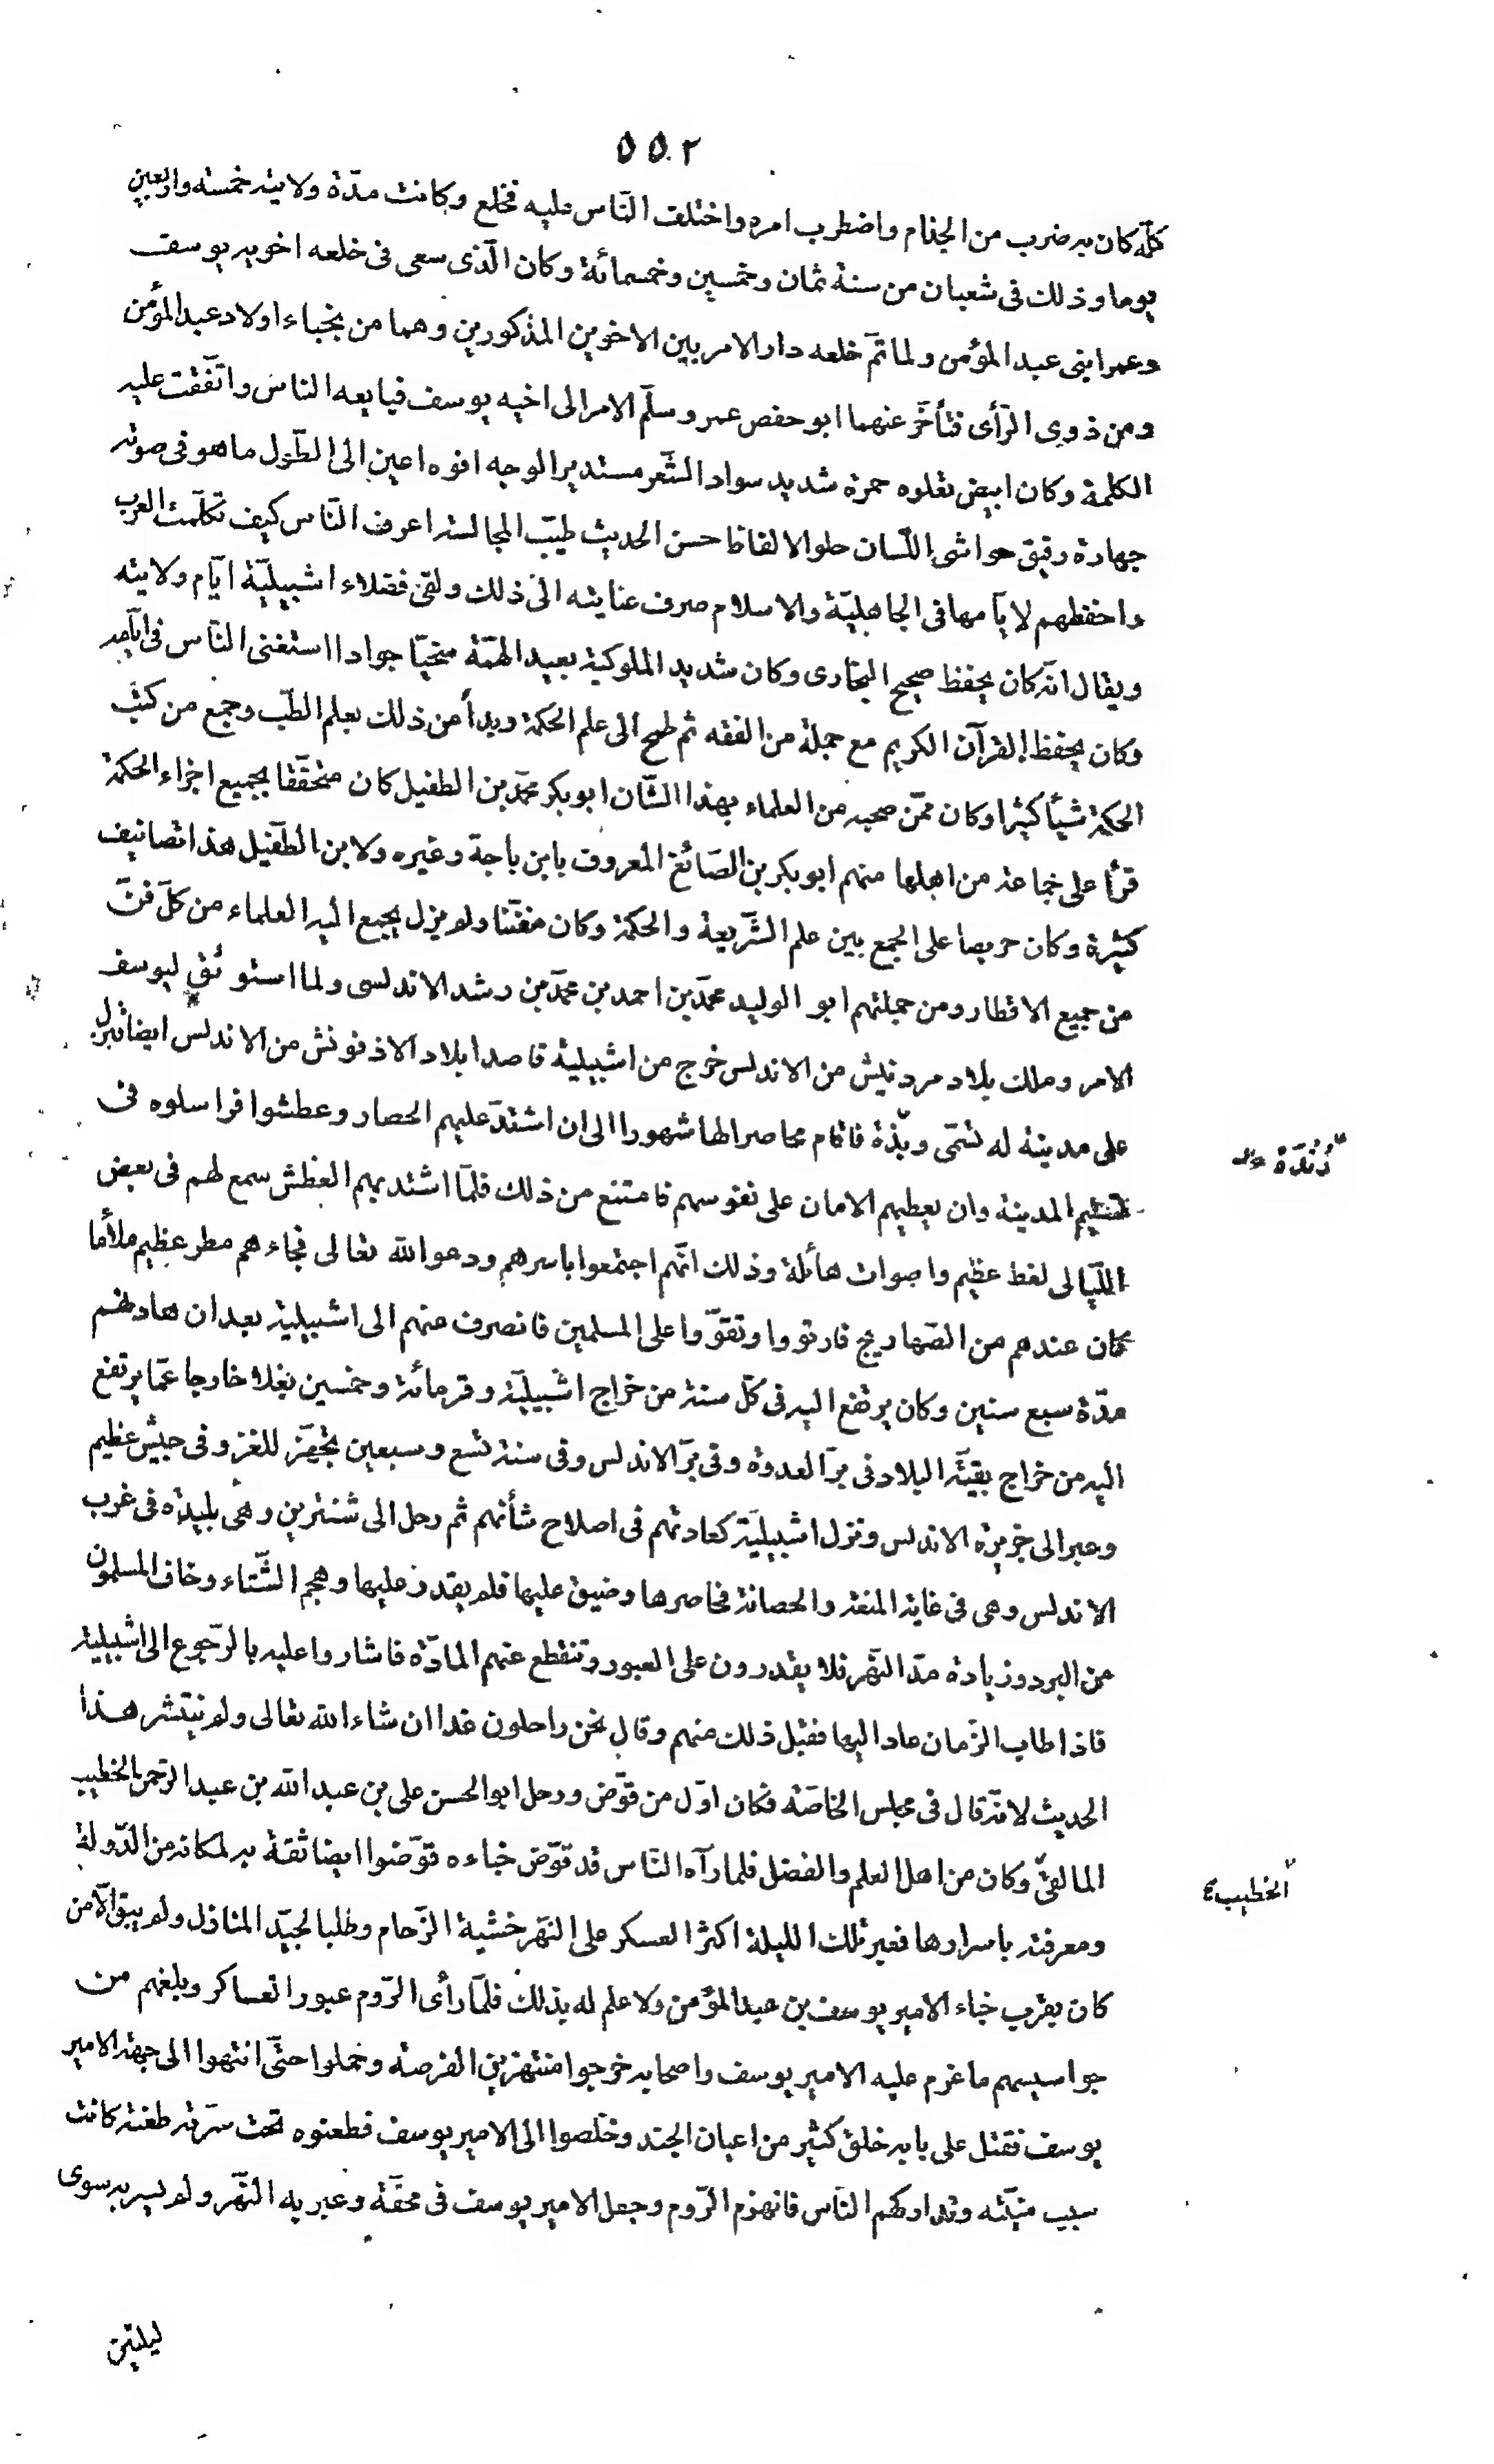 ٥٥٢
كلّه كان به ضرب من الجذام واضطرب امره واختلف النّاس عليه فخلع وكانت مدّة ولايته خمسة واربعين
يوما وذلك فى شعبان من سنة ثمان وخمسين وخمسمائة وكان الّذى سعى فى خلعه اخويه يوسف
وعمر ابنى عبد المؤمن ولما تمّ خلعه دار الامر بين الاخوين المذكورين وهما من نجباء اولاد عبد المؤمن
ومن ذوى الرّأى فتأخّر عنهما ابو حفص عمر وسلّم الامر الى اخيه يوسف فبايعه الناس واتّفقت عليه
الكلمة وكان ابيض تعلوه حمرة شديد سواد الشّعر مستدير الوجه افوه اعين الى الطّول ما هو فى صوته
جهارة رقيق حواشى اللّسان حلو الالفاظ حسن الحديث طيّب المجالسة اعرف النّاس كيف تكلّمت العرب
واحفظهم لايّامها فى الجاهليّة والاسلام صرف عنايته الى ذلك ولقى فضلاء اشبيليّة ايّام ولايته
ويقال انّه كان يحفظ صحيح البخارى وكان شديد الملوكية بعيد الهمّة سخيّا جوادا استغنى النّاس فى ايّامه
وكان يحفظ القرآن الكريم مع جملة من الفقه ثم طمح الى علم الحكمة وبدأ من ذلك بعلم الطّب وجمع من كتب
الحكمة شيأ كثيرا وكان ممّن صحبه من العلماء بهذا الشّان ابو بكر محمّد بن الطفيل كان متحقّقا بجميع اجزاء الحكمة
قرأ على جماعة من اهلها منهم ابو بكر بن الصّائغ المعروف بابن باجة وغيره ولابن الطّفيل هذا تصانيف
كثيرة وكان حريصا على الجمع بين علم الشّريعة والحكمة وكان مفنّنا ولم يزل يجمع اليه العلماء من كلّ فنّ
من جميع الاقطار ومن جملتهم ابو الوليد محمّد بن احمد بن محمّد بن رشد الاندلسى ولما استوثق ليوسف
الامر وملك بلاد مردنيش من الاندلس خرج من اشبيلية قاصدا بلاد الاذفونش من الاندلس ايضا فنزل
على مدينة له تسمّى وبذة فاقام محاصرا لها شهورا الى ان اشتدّ عليهم الحصار وعطشوا فراسلوه فى
تسليم المدينة وان يعطيهم الامان على نفوسهم فامتنع من ذلك فلمّا اشتد بهم العطش سمع لهم فى بعض
اللّيالى لغط عظيم واصوات هائلة وذلك انّهم اجتمعوا باسرهم ودعوا الله تعالى فجاءهم مطر عظيم ملأ ما
كان عندهم من الصّهاريج فارتووا وتقوّوا على المسلمين فانصرف عنهم الى اشبيلية بعد ان هادنهم
مدّة سبع سنين وكان يرتفع اليه فى كلّ سنة من خراج اشبيليّة وقر مائة وخمسين بغلا خارجا عمّا يرتفع
اليه من خراج بقيّة البلاد فى برّ العدوة وفى برّ الاندلس وفى سنة تسع وسبعين تجهّز للغزو فى جيش عظيم
وعبر الى جزيرة الاندلس ونزل اشبيليّة كعادتهم فى اصلاح شأنهم ثم رحل الى شنترين وهى بليدة فى غرب
الاندلس وهى فى غاية المنعة والحصانة فحاصرها وضيق عليها فلم يقدر عليها وهجم الشّتاء وخاف المسلمون
من البرد وزيادة مدّ النّهر فلا يقدرون على العبور وتنقطع عنهم المادّة فاشاروا عليه بالرّجوع الى اشبيلية
فاذا طاب الزّمان عاد اليها فقبل ذلك منهم وقال نحن راحلون غدا ان شاء الله تعالى ولم ينتشر هذا
الحديث لانّه قال فى مجلس الخاصّة فكان اوّل من قوّض ورحل ابو الحسن على بن عبد الله بن عبد الرّحمن الخطيب
المالقىّ وكان من اهل العلم والفضل فلما رآه النّاس قد قوّض خباءه قوّضوا ايضا ثقة به لمكانه من الدّولة
ومعرفته باسرارها فعبر تلك الليلة اكثر العسكر على النّهر خشية الزّحام وطلبا لجيّد المنازل ولم يبق الّا من
كان بقرب خباء الامير يوسف بن عبد المؤمن ولا علم له بذلك فلمّا رأى الرّوم عبور العساكر وبلغهم من
جواسيسهم ما عزم عليه الامير يوسف واصحابه خرجوا منتهزين الفرصة وحملوا حتّى انتهوا الى جهة الامير
يوسف فقتل على بابه خلق كثير من اعيان الجند وخلصوا الى الامير يوسف فطعنوه تحت سرّته طعنة كانت
سبب منيّته وتداركهم النّاس فانهزم الرّوم وجعل الامير يوسف فى محفّة وعبر به النّهر ولم يسر به سوى
ليلتين
الخطيب